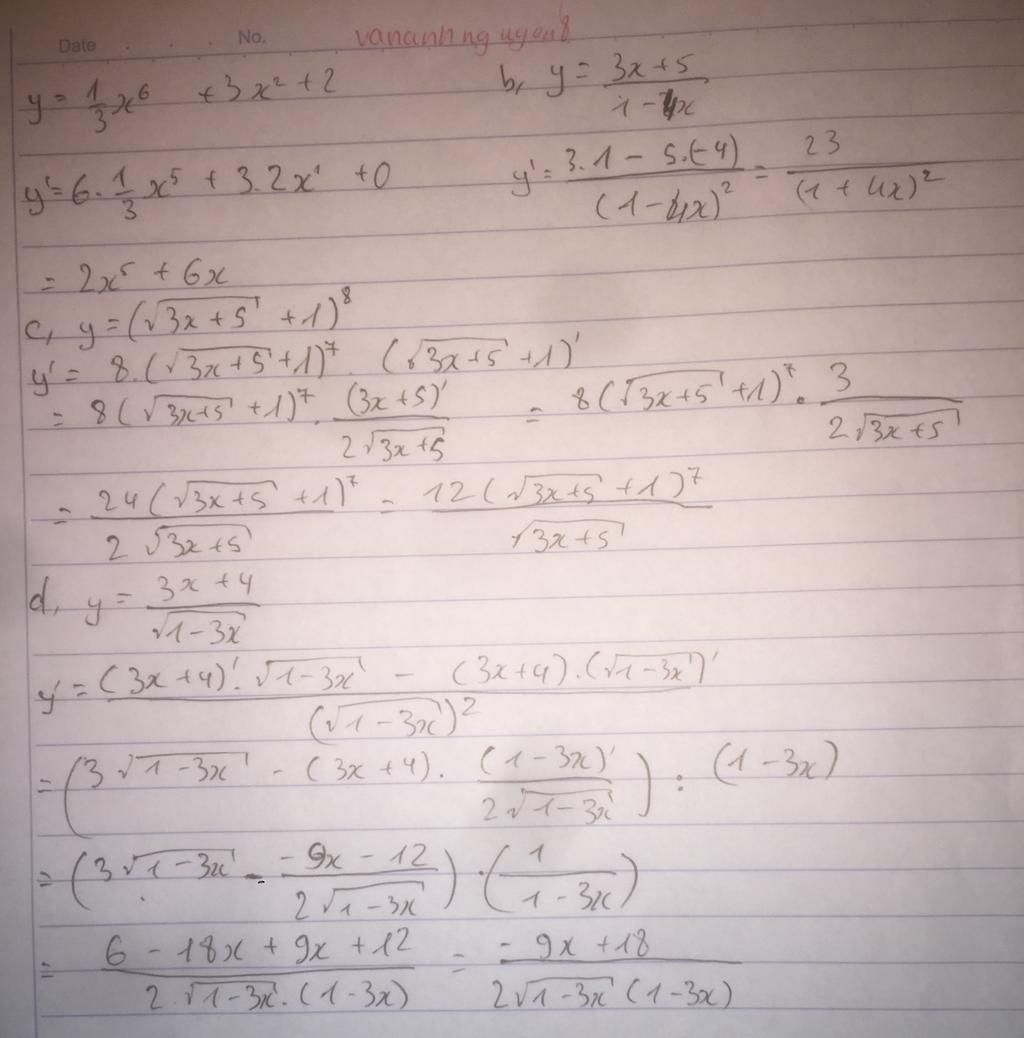 Date . . . No. vananhnguyen8
y = 1/3 x⁶ + 3x² + 2
b, y = (3x + 5)/(1 - 4x)
y' = 6 · 1/3 x⁵ + 3.2x¹ + 0
y' = (3.1 - 5.(-4))/(1 - 4x)² = 23/(1 + 4x)²
= 2x⁵ + 6x
c, y = (√(3x + 5) + 1)⁸
y' = 8.(√(3x + 5) + 1)⁷ . (√(3x + 5) + 1)'
= 8(√(3x + 5) + 1)⁷ . (3x + 5)'/(2√(3x + 5)) = 8(√(3x + 5) + 1)⁷ . 3/(2√(3x + 5))
= 24(√(3x + 5) + 1)⁷/(2√(3x + 5)) = 12(√(3x + 5) + 1)⁷/√(3x + 5)
d, y = (3x + 4)/√(1 - 3x)
y' = ((3x + 4)'.√(1 - 3x) - (3x + 4).(√(1 - 3x))')/(√(1 - 3x))²
= (3√(1 - 3x) - (3x + 4). (1 - 3x)'/(2√(1 - 3x))) : (1 - 3x)
= (3√(1 - 3x) - (-9x - 12)/(2√(1 - 3x))) . (1/(1 - 3x))
= (6 - 18x + 9x + 12)/(2.√(1 - 3x).(1 - 3x)) = (-9x + 18)/(2√(1 - 3x)(1 - 3x))